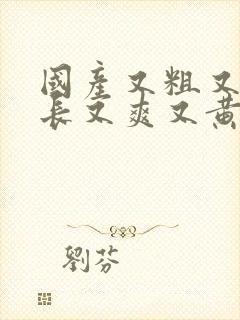 國產又粗又
長文爽又黃
劉芬